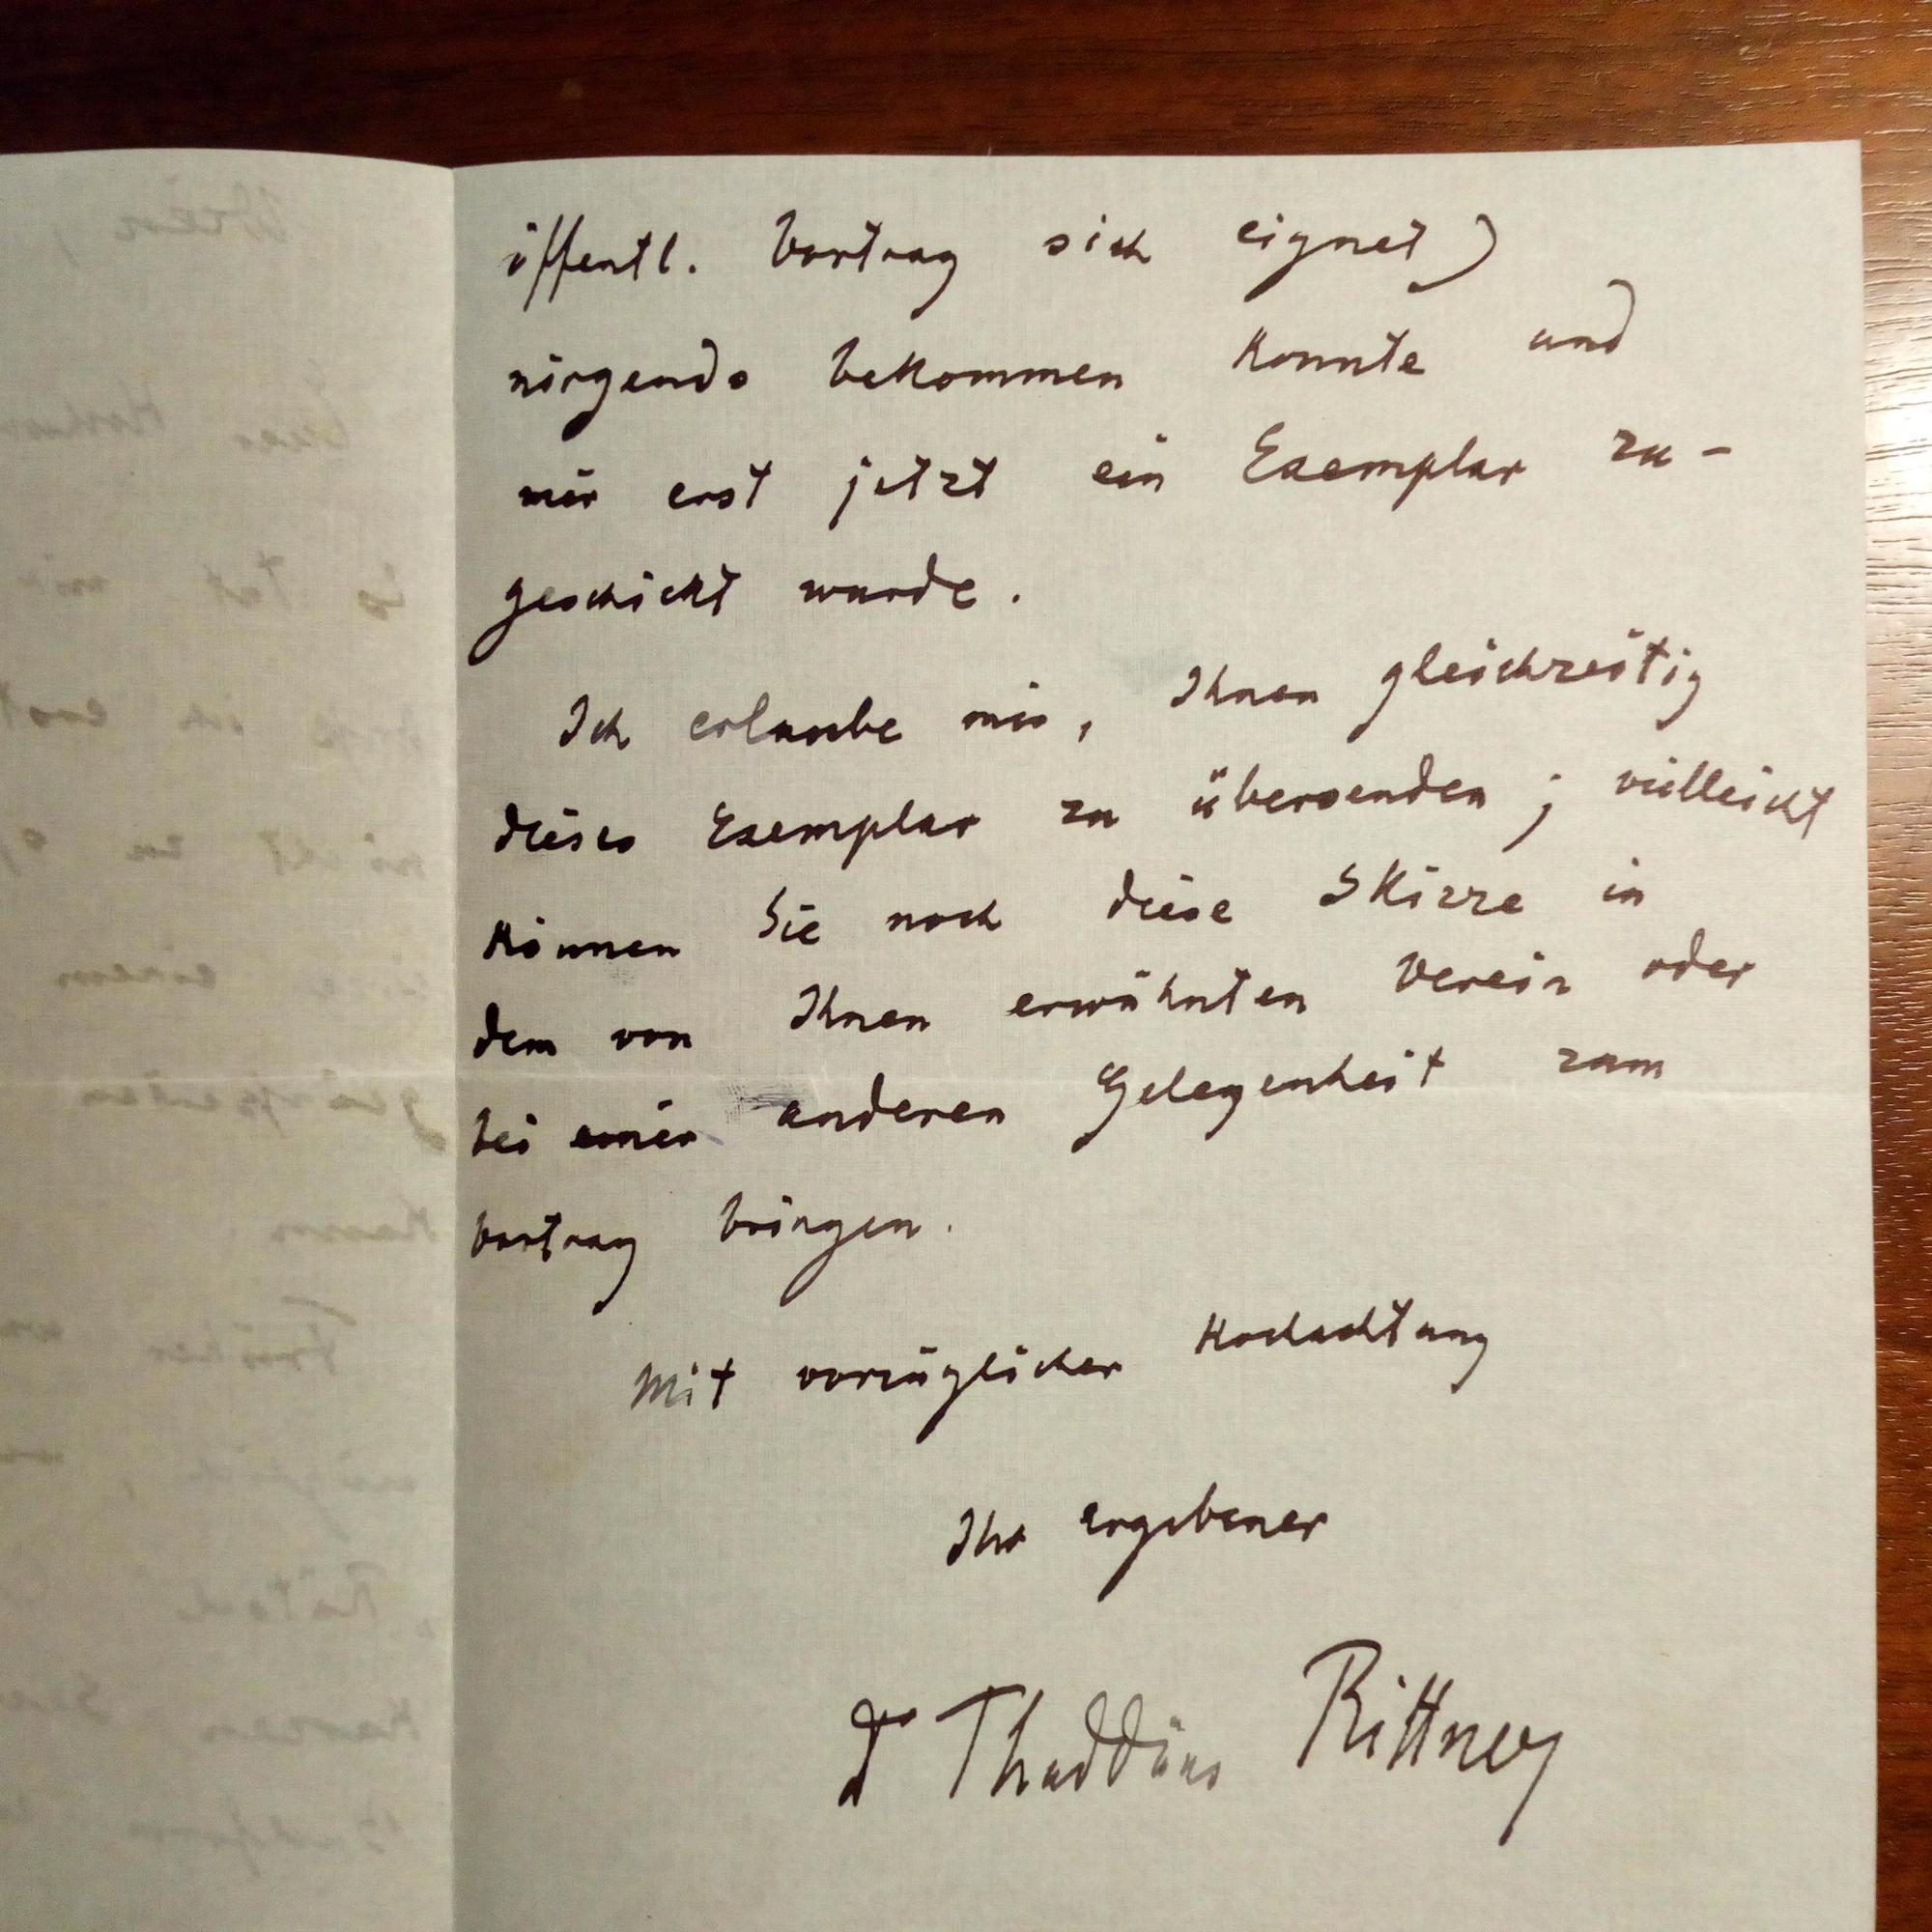 öffentl. Vortrag sich eignet)
nirgends bekommen konnte und
mir erst jetzt ein Exemplar zu-
geschickt wurde.
Ich erlaube mir, Ihnen gleichzeitig
dieses Exemplar zu übersenden; vielleicht
können Sie noch diese Skizze in
dem von Ihnen erwähnten Verein oder
bei einer anderen Gelegenheit zum
Vortrag bringen.
Mit vorzüglicher Hochachtung
Ihr ergebener
Dr Thaddäus Rittner